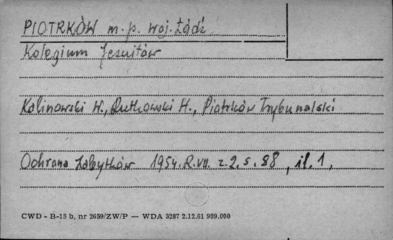 PIOTRKÓW m.p. woj. Łódź
Kolegium Jezuitów
Kalinowski W., Rutkowski H., Piotrków Trybunalski
Ochrona Zabytków 1954. R. VII. z. 2, s. 88, il. 1,
CWD - B-13 b, nr 2659/ZW/P — WDA 3287 2.12.61 909.000